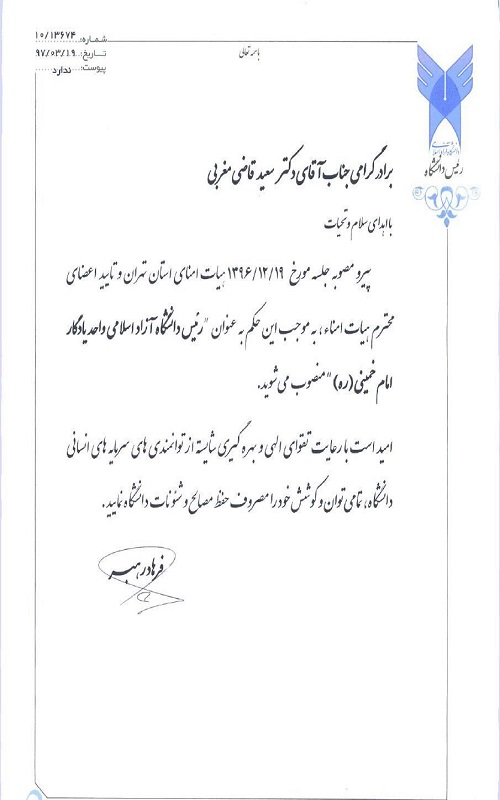 شماره: ۱۰/۱۳۶۷۴
تاریخ: ۹۷/۰۳/۱۹
پیوست: ندارد
باسمه تعالی
دانشگاه آزاد اسلامی
رئیس دانشگاه
برادر گرامی جناب آقای دکتر سعید قاضی مغربی
با اهدای سلام و تحیات
پیرو مصوبه جلسه مورخ ۱۳۹۶/۱۲/۱۹ هیات امنای استان تهران و تایید اعضای
محترم هیات امناء، به موجب این حکم به عنوان "رئیس دانشگاه آزاد اسلامی واحد یادگار
امام خمینی (ره)" منصوب می شوید.
امید است با رعایت تقوای الهی و بهره گیری شایسته از توانمندی های سرمایه های انسانی
دانشگاه، تمامی توان و کوشش خود را مصروف حفظ مصالح و شئونات دانشگاه نمایید.
فرهاد رهبر